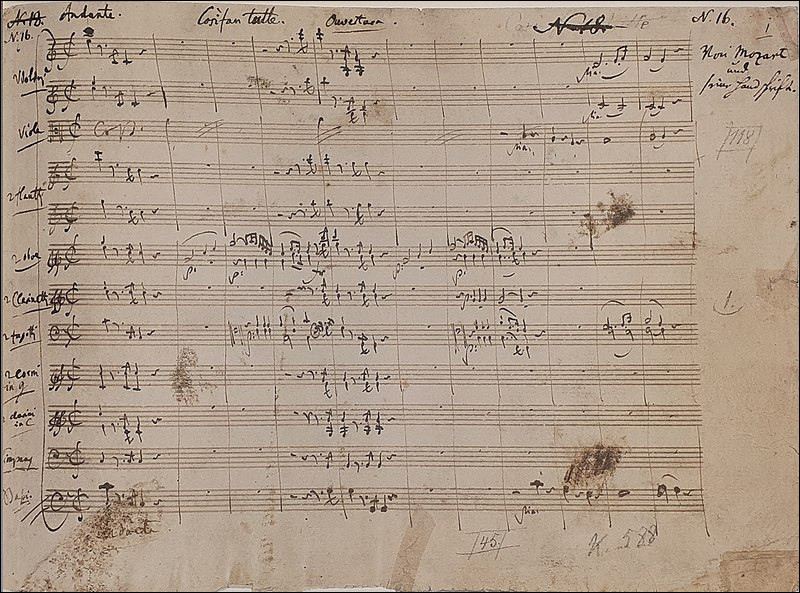 N. 18. Andante. Così fan tutte. Ouvertura. N. 18. N. 16. 1
N. 16.
Von Mozart
und
seine Handschrift.
Violini
Viole
[118]
2 flauti
2 oboe
2 Clarinetti
1.
2 fagotti
2 Corni
in g
2 clarini
in C
Tympany
Bassi
Andante
[45.]
K. 588